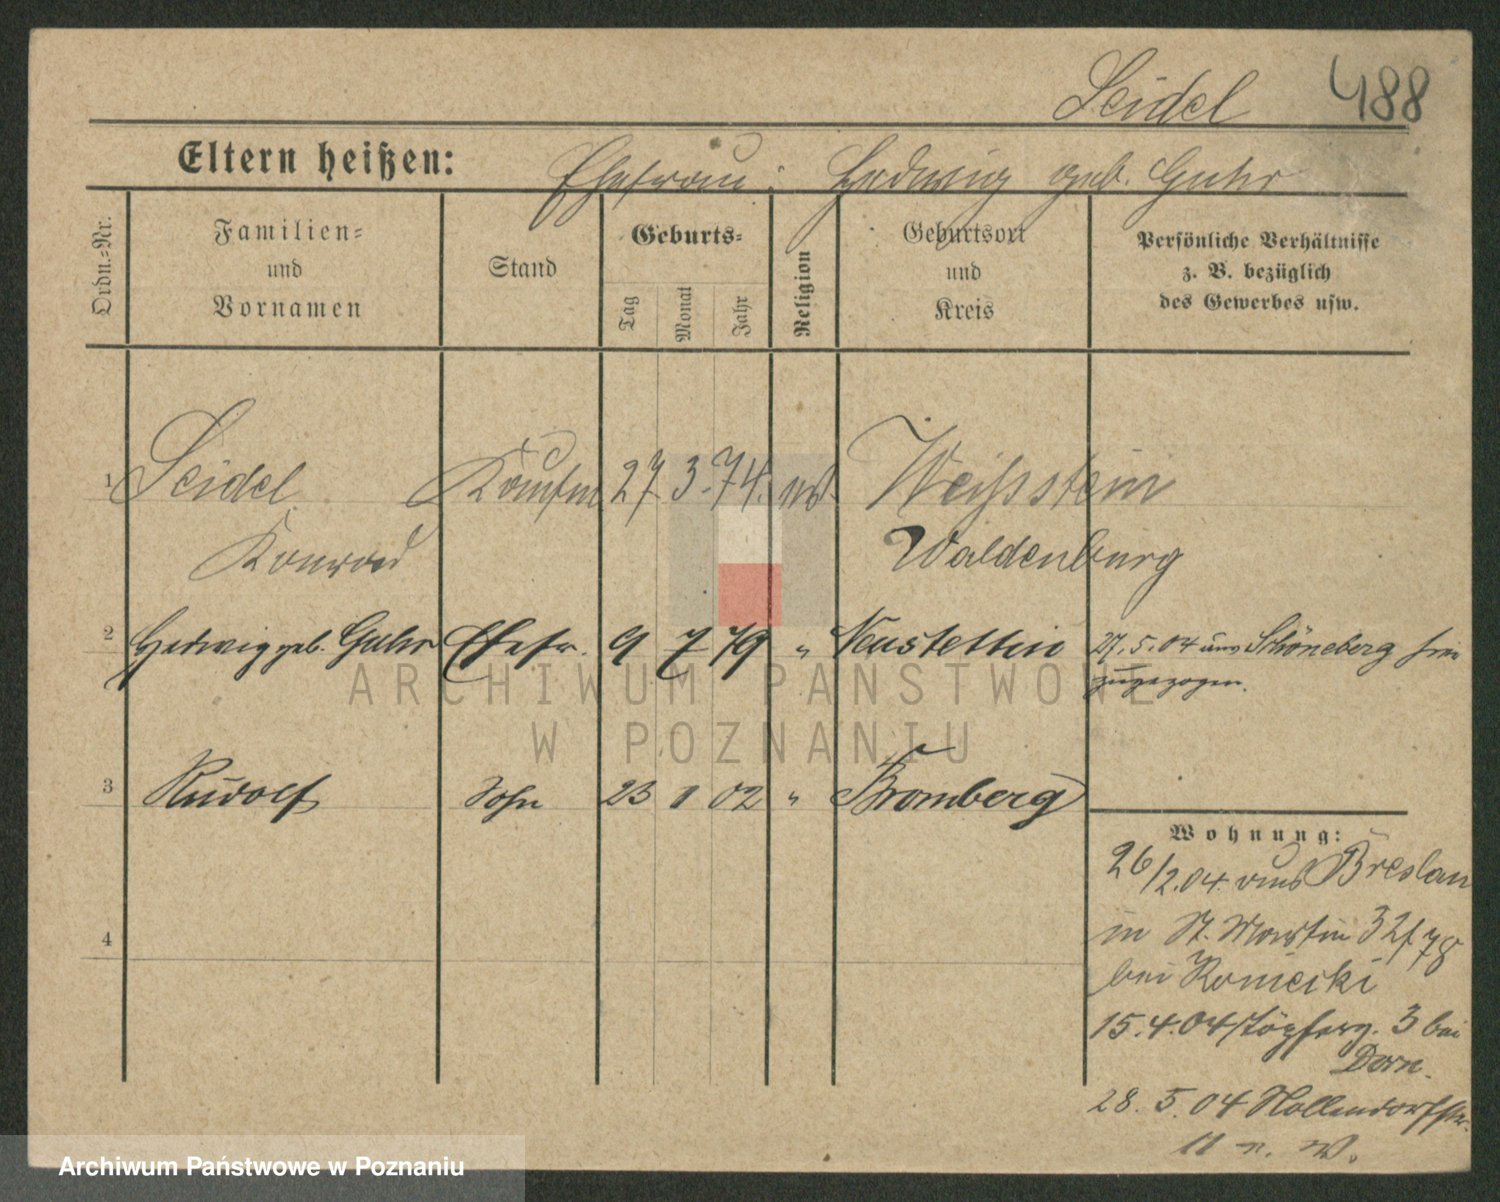 Seidel 488
Eltern heißen: Ehefrau: Hedwig geb. Guhr
Ordn.-Nr.
Familien-
und
Vornamen
Stand
Geburts-
Tag
Monat
Jahr
Religion
Geburtsort
und
Kreis
Persönliche Verhältnisse
z. B. bezüglich
des Gewerbes usw.
1 Seidel Kaufm 27. 3. 74. Weißstein
Konrad Waldenburg
2 Hedwig geb. Guhr Ehefr. 9 7 79 " Neustettin 27. 5. 04 aus Schöneberg
zugezogen.
3 Rudolf Sohn 23 1 02 " Bromberg
4
Wohnung:
26/2.04. aus Breslau
in St. Martin
bei Koniecki
15. 4. 04 Töpferg. 3 bei
Dorn.
28. 5. 04 Hollendorfstr.
11
ARCHIWUM PAŃSTWOWE
W POZNANIU
Archiwum Państwowe w Poznaniu